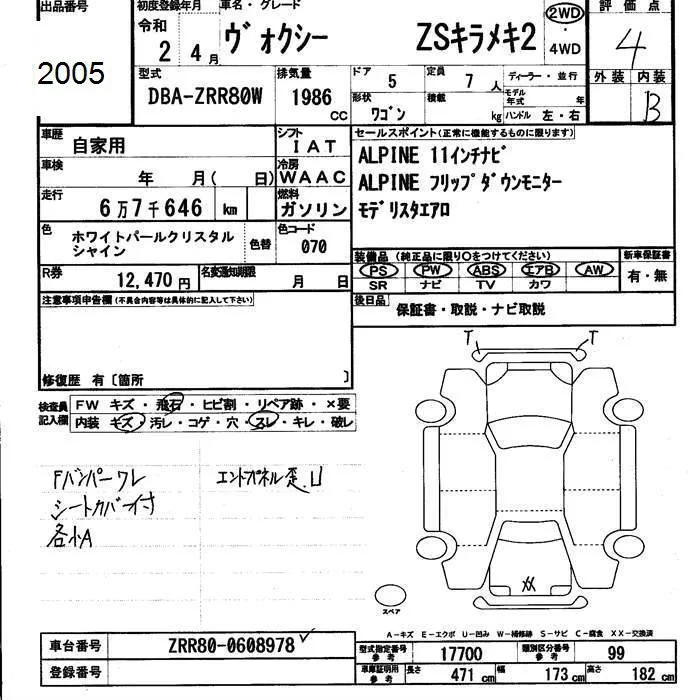 出品番号
2005
初度登録年月
令和
2 年 4 月
車名・グレード
ヴォクシー ZSキラメキ2
2WD
・
4WD
評価点
4
外装 内装
B
型式
DBA-ZRR80W
排気量
1986 CC
ドア 5
定員 7 人
形状 ワゴン
積載 kg
ディーラー・並行
モデル年式 年
ハンドル 左・右
車歴 自家用
シフト IAT
車検 年 月( 日)
冷房 WAAC
走行 6万7千646 km
燃料 ガソリン
色 ホワイトパールクリスタル
シャイン
色替
色コード 070
R券 12,470円
名変通知期限 月 日
セールスポイント(正常に機能するものに限ります)
ALPINE 11インチナビ
ALPINE フリップダウンモニター
モデリスタエアロ
装備品(純正品に限り○をつけてください)
PS PW ABS エアB AW
SR ナビ TV カワ
新車保証書
有・無
後日品 保証書・取説・ナビ取説
注意事項申告欄(不具合内容等は具体的に記入して下さい)
修復歴 有〔箇所 〕
検査員記入欄
FW キズ・飛石・ヒビ割・リペア跡・×要
内装 キズ・汚レ・コゲ・穴・スレ・キレ・破レ
Fバンパーワレ
シートカバー付
各小A
エンドパネル歪.U
T T
XX
スペア
A-キズ E-エクボ U-凹み W-補修跡 S-サビ C-腐食 XX-交換済
車台番号 ZRR80-0608978
登録番号
型式指定番号 参考 17700
類別区分番号 参考 99
車庫証明用 参考 長さ 471 cm 幅 173 cm 高さ 182 cm